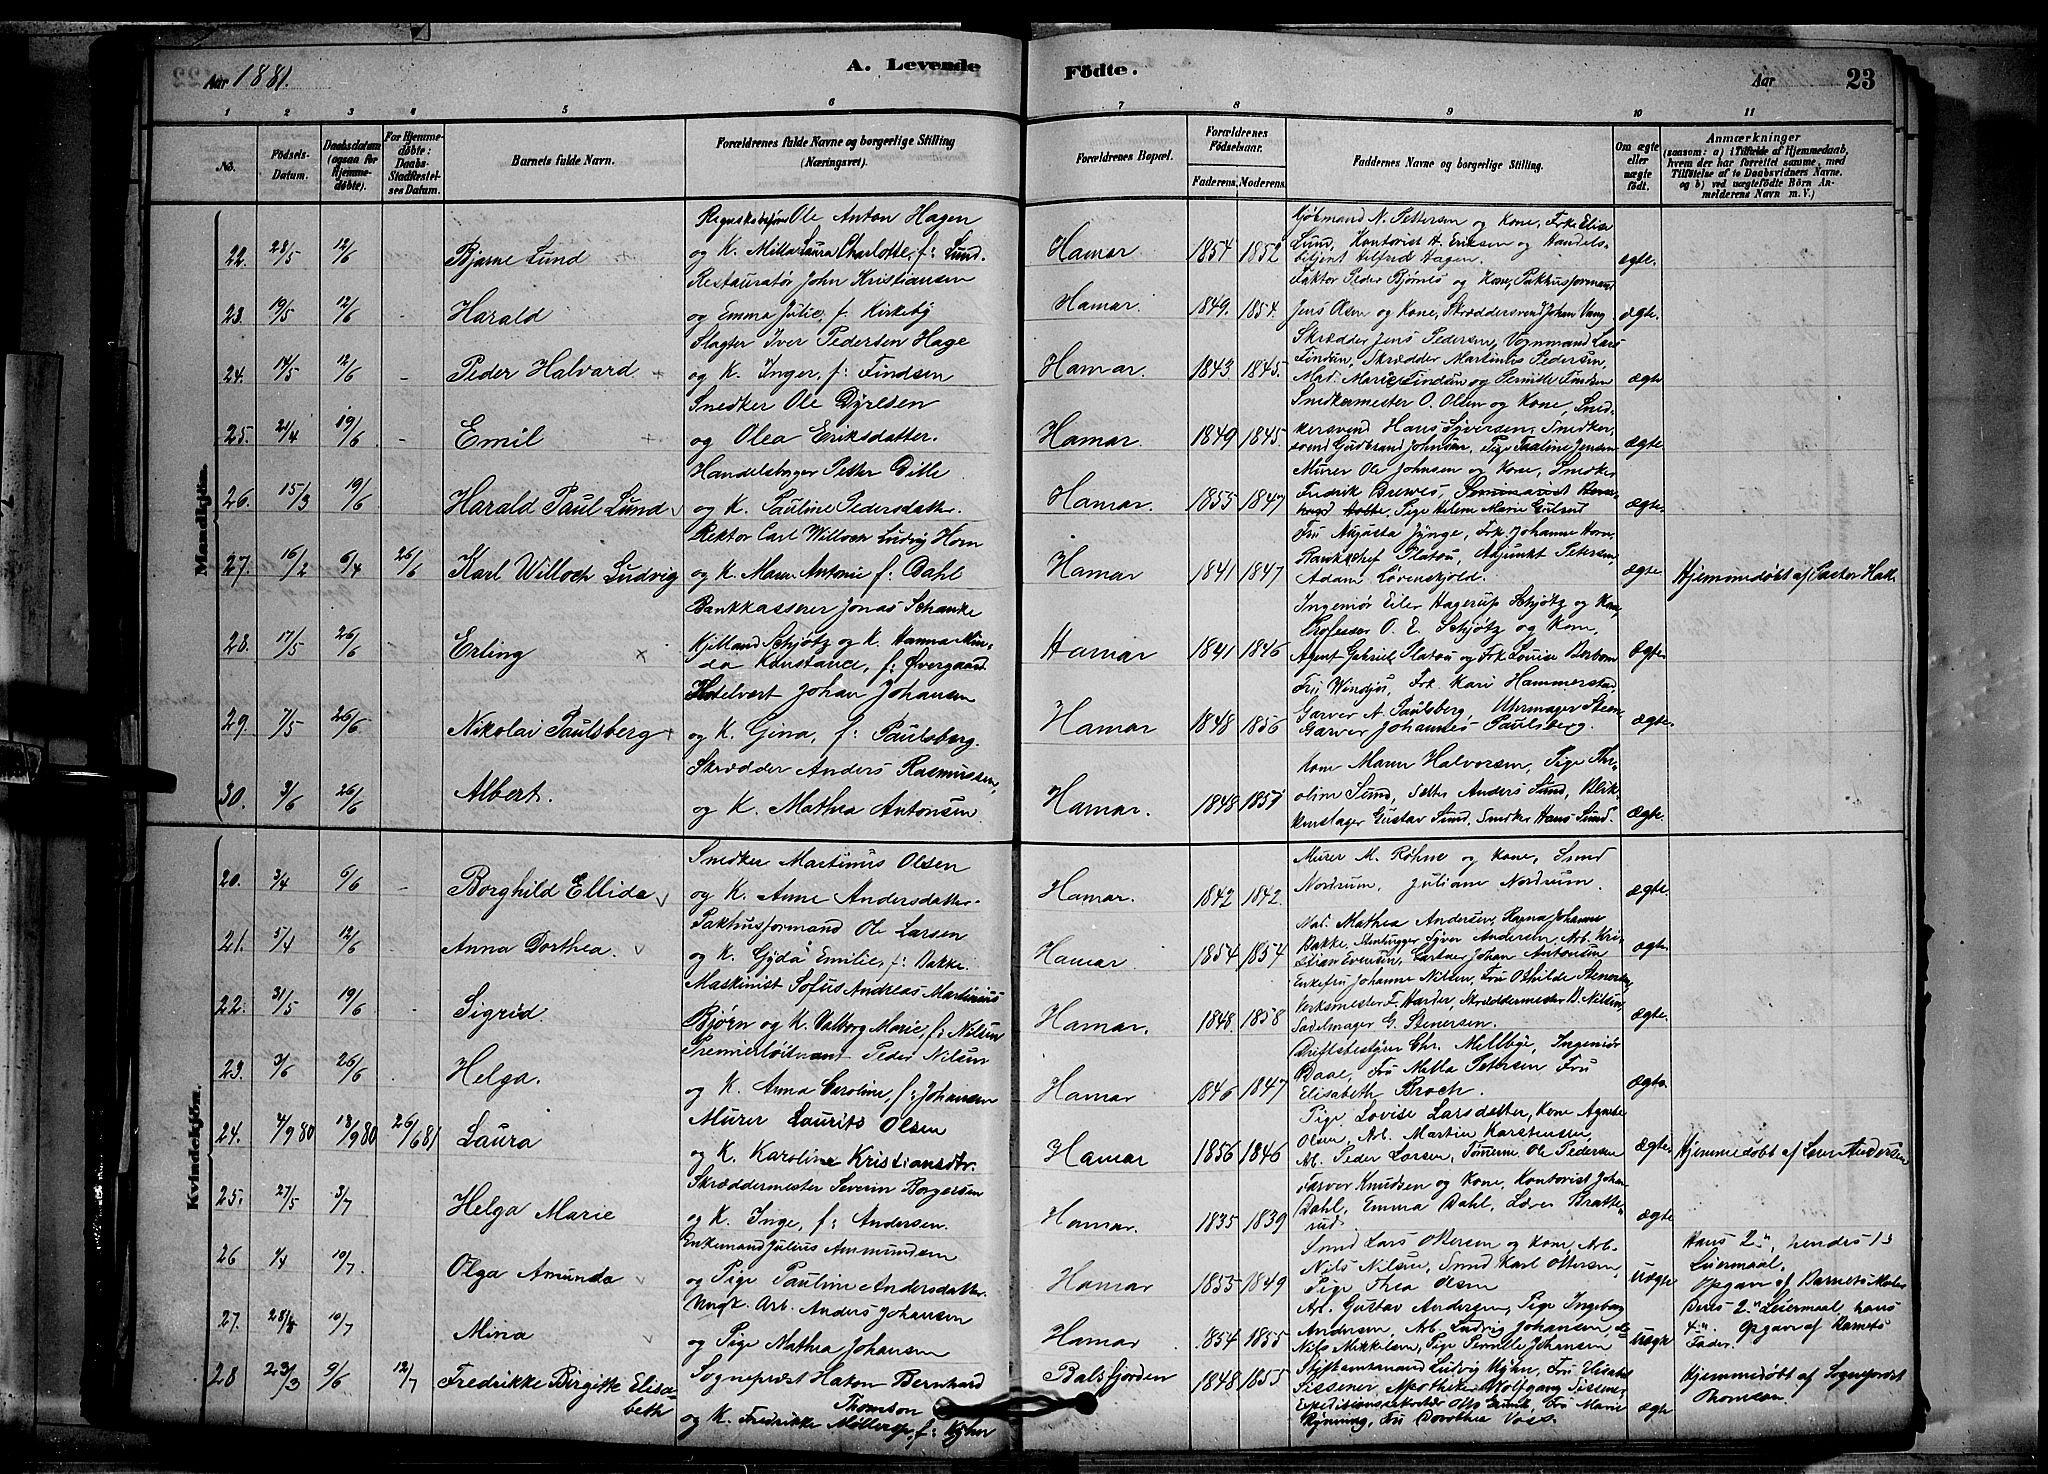 Aar 1881.
A. Levende
Fødte.
Aar
23
1 2 3 4 5 6 7 8 9 10 11
No.
Fødsels-
Datum.
Daabsdatum
(ogsaa for
Hjemme-
døbte).
For Hjemme-
døbte:
Daabs-
Stadfæstel-
ses Datum.
Barnets fulde Navn.
Forældrenes fulde Navne og borgerlige Stilling
(Næringsvei).
Forældrenes Bopæl.
Forældrenes
Fødselsaar.
Faderens. Moderens.
Faddernes Navne og borgerlige Stilling.
Om ægte
eller
uægte
født.
Anmærkninger
(saasom: a) i Tilfælde af Hjemmedaab,
hvem der har forrettet samme, med
Tilføielse af to Daabsvidners Navne.
og b) ved uægtefødte Børn An-
melderens Navn m. V.)
Mandkjøn.
22. 28/5 12/6 - Bjarne Lund
Ole Anton Hagen
og K. Milla Laura Charlotte, f: Lund.
Hamar. 1854 1852
Gjørmand N. Pettersen og Kone, Frk. Elise
Lund, Kontorist H. Eriksen og Handels-
betjent Hilfred Hagen.
ægte.
23. 19/5 12/6 - Harald
Restauratør John Kristiansen
og Emma Julie, f. Kirkeby
Hamar. 1849. 1854.
Faktor Peder Bjørnes og Kone, Pakhusformand
Jens Olsen og Kone, Skræddersvend Johan Vang,
ægte.
24. 14/5 12/6 - Peder Halvard
Slagter Iver Pedersen Hage
og K. Inger, f: Findsen
Hamar. 1843 1845.
Skrædder Jens Pedersen, Vognmand Lars
Findsen, Skrædder Martinus Pedersen,
Mad. Marie Findsen og Pernille Findsen
ægte
25. 21/4 19/6 - Emil
Snedker Ole Dyresen
og Olea Eriksdatter.
Hamar. 1849 1845
Snedkermester O. Olsen og Kone, Sned-
kersvend Hans Syversen, Snedker-
svend Gudbrand Johnsen, Pige Paaline Jensen
ægte
26. 15/3 19/6 Harald Paul Lund
Handelsborger Petter Ditle
og K. Pauline Pedersdatter.
Hamar. 1855 1847
Murer Ole Johnsen og Kone, Snedker
Fredrik Brewes, Seminarist
Holte, Pige Helene Marie Gulsrud
ægte.
27. 16/2 6/4 26/6 Karl Willoch Ludvig
Rektor Carl Willoch Ludvig Horn
og K. Maren Antonie f: Dahl
Hamar 1841 1847
Fru Augusta Jynge, Frk. Johanne Horn,
Bankchef Platou, Adjunkt Petersen,
Adam Løvenskjold.
ægte
Hjemmedøbt af Pastor Hall.
28. 17/5 26/6 - Erling
Bankkasserer Jonas Schanke
Kjelland Schjøtz og K. Hanna Min-
da Konstance, f: Øvergaard
Hamar 1841 1846
Ingeniør Eiler Hagerup Schjøtz og Kone,
Professor O. E. Schjøtz og Kone,
Agent Gabriel Platou og Frk. Louise Berbom
ægte.
29. 7/5 26/6 Nikolai Paulsberg
Hotelvert Johan Johansen
og K. Gina, f: Paulsberg.
Hamar 1848 1856
Fru Windju, Frk. Kari Hammerstad,
Garver A. Paulsberg, Uhrmager Steen
Garver Johannes Paulsberg.
ægte.
30. 3/6 26/6 Albert.
Skrædder Anders Rasmussen,
og K. Mathea Antonsen
Hamar. 1848 1851
Kone Maren Halvorsen, Pige Th-
oline Sund, Anders Sund, Blik-
kenslager Gustav Sund, Snedker Hans Sund.
ægte.
Kvindekjøn.
20. 3/4 6/6 - Borghild Ellida
Snedker Martinus Olsen
og K. Anne Andersdatter.
Hamar. 1842 1842.
Murer M. Røhne og Kone, Smed
Nordrum, Juliane Nordrum.
ægte
21. 5/4 12/6 Anna Dorthea.
Pakhusformand Ole Larsen
og K. Gyda Emilie, f: Bakke.
Hamar. 1854 1854
Mad. Mathea Andersen, Ragna Johanne
Bakke, Stenhugger Syver Andersen, Arb. Kri-
stian Evensen, Gartner Johan Antonsen
ægte
22. 31/5 19/6 Sigrid.
Maskinist Sofus Andreas Martinius
Bjørn og K. Valborg Marie, f: Nilsen
Hamar. 1848. 1858
Enkefru Johanne Nilsen, Fru Othilde Stenersen,
Verksmester F. Harder, Skræddermester B. Nilsen,
Sadelmager G. Stenersen.
ægte
23. 3/6 26/6 Helga.
Premierløitnant Peder Nilsen
og K. Anna Caroline, f: Johansen
Hamar 1846 1847
Driftsbestyrer Chr. Mellbye, Ingeniør
Baae, Fru Milla Petersen Fru
Elisabeth Broch.
ægte
24. 4/9 80 18/9 80 26/6 81 Laura
Murer Laurits Olsen
og K. Karoline Kristiansdtr.
Hamar 1856 1846
Pige Lovise Larsdatter, Kone Agnete
Olsen, Arb. Martin Karstensen,
Arb. Peder Larsen, Tømerm. Ole Pedersen
ægte
Hjemmedøbt af Andersen
25. 27/5 3/7 Helga Marie
Skræddermester Severin Borgersen
og K. Inge, f: Andersen.
Hamar. 1835 1839
Farver Knudsen og Kone, Kontorist Johan
Dahl, Emma Dahl, Lærer Bratte-
rud.
ægte
26 1/4 10/7 Olga Amunda
Enkemand Julius Ammundsen
og Pige Pauline Andersdatter.
Hamar 1853 1849
Smed Lars Ottersen og Kone, Arb.
Nils Nilsen, Smed Karl Ottersen,
Pige Thea Olsen
uægte
Hans 2", hendes 1s
Leiermaal.
Opgav. af Barnets Moder
27. 28/4 10/7 Mina
Ungk. Arb. Anders Johansen
og Pige Mathea Johansen
Hamar 1854 1855
Arb. Gustav Andersen, Pige Ingeborg
Andersen, Arb. Ludvig Johansen,
Nils Mikkelsen, Pige Pernille Johansen
uægte
Deres 2" Leiermaal, hans
4". Opgav. af Barnets
Fader.
28 23/3 9/6 12/7 Fredrikke Birgitte Elisa-
beth
Sogneprest Haton Bernhard
Thomson
og K. Fredrikke Møllerop, f: Myhre
Balsfjorden 1848 1855
Stiftsamtmand Ludvig Fru Elisabeth
Fissener, Apotheker Wolfgang Fissener,
Expeditionssekretær Otto Fru Marie
Fru Dorothea Voss.
ægte
Hjemmedøbt af Sogneprest
Thomson